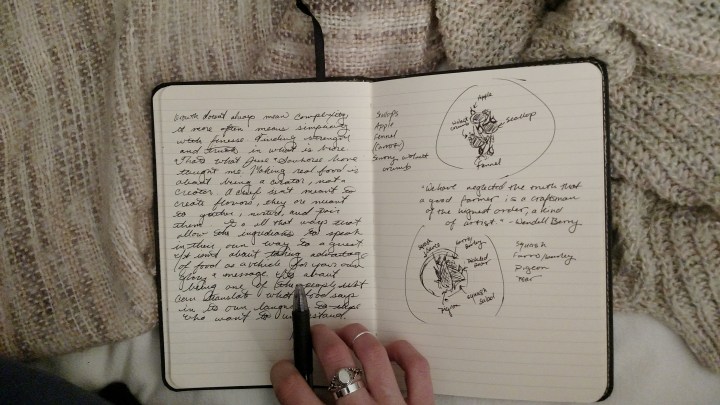 Growth doesn't always mean complexity,
it more often means simplicity
with finesse. Finding strength
and truth in what is there
Thats what June
taught me. Making real food is
about being a curator, not a
creator. A chef isn't meant to
create flavors, they are meant
to gather, and pair
them. In a
allow the ingredients to speak
in their own way to a guest.
not about taking advantage
of food as a vehicle for your own
a message. Its about
being one of the people that
can translate what food says
in to our language to those
who want to understand.
Scallops
Apple
Fennel
(Carrots)
Smoky walnut
crumb
Apple
walnut
crumb
Scallop
Fennel
"We have neglected the truth that
a good farmer is a craftsman
of the highest order, a kind
of artist." - Wendell Berry
Farro/Barley
Pickled
Pear
squash
salad
Pigeon
Squash
Farro/Barley
Pigeon
Pear